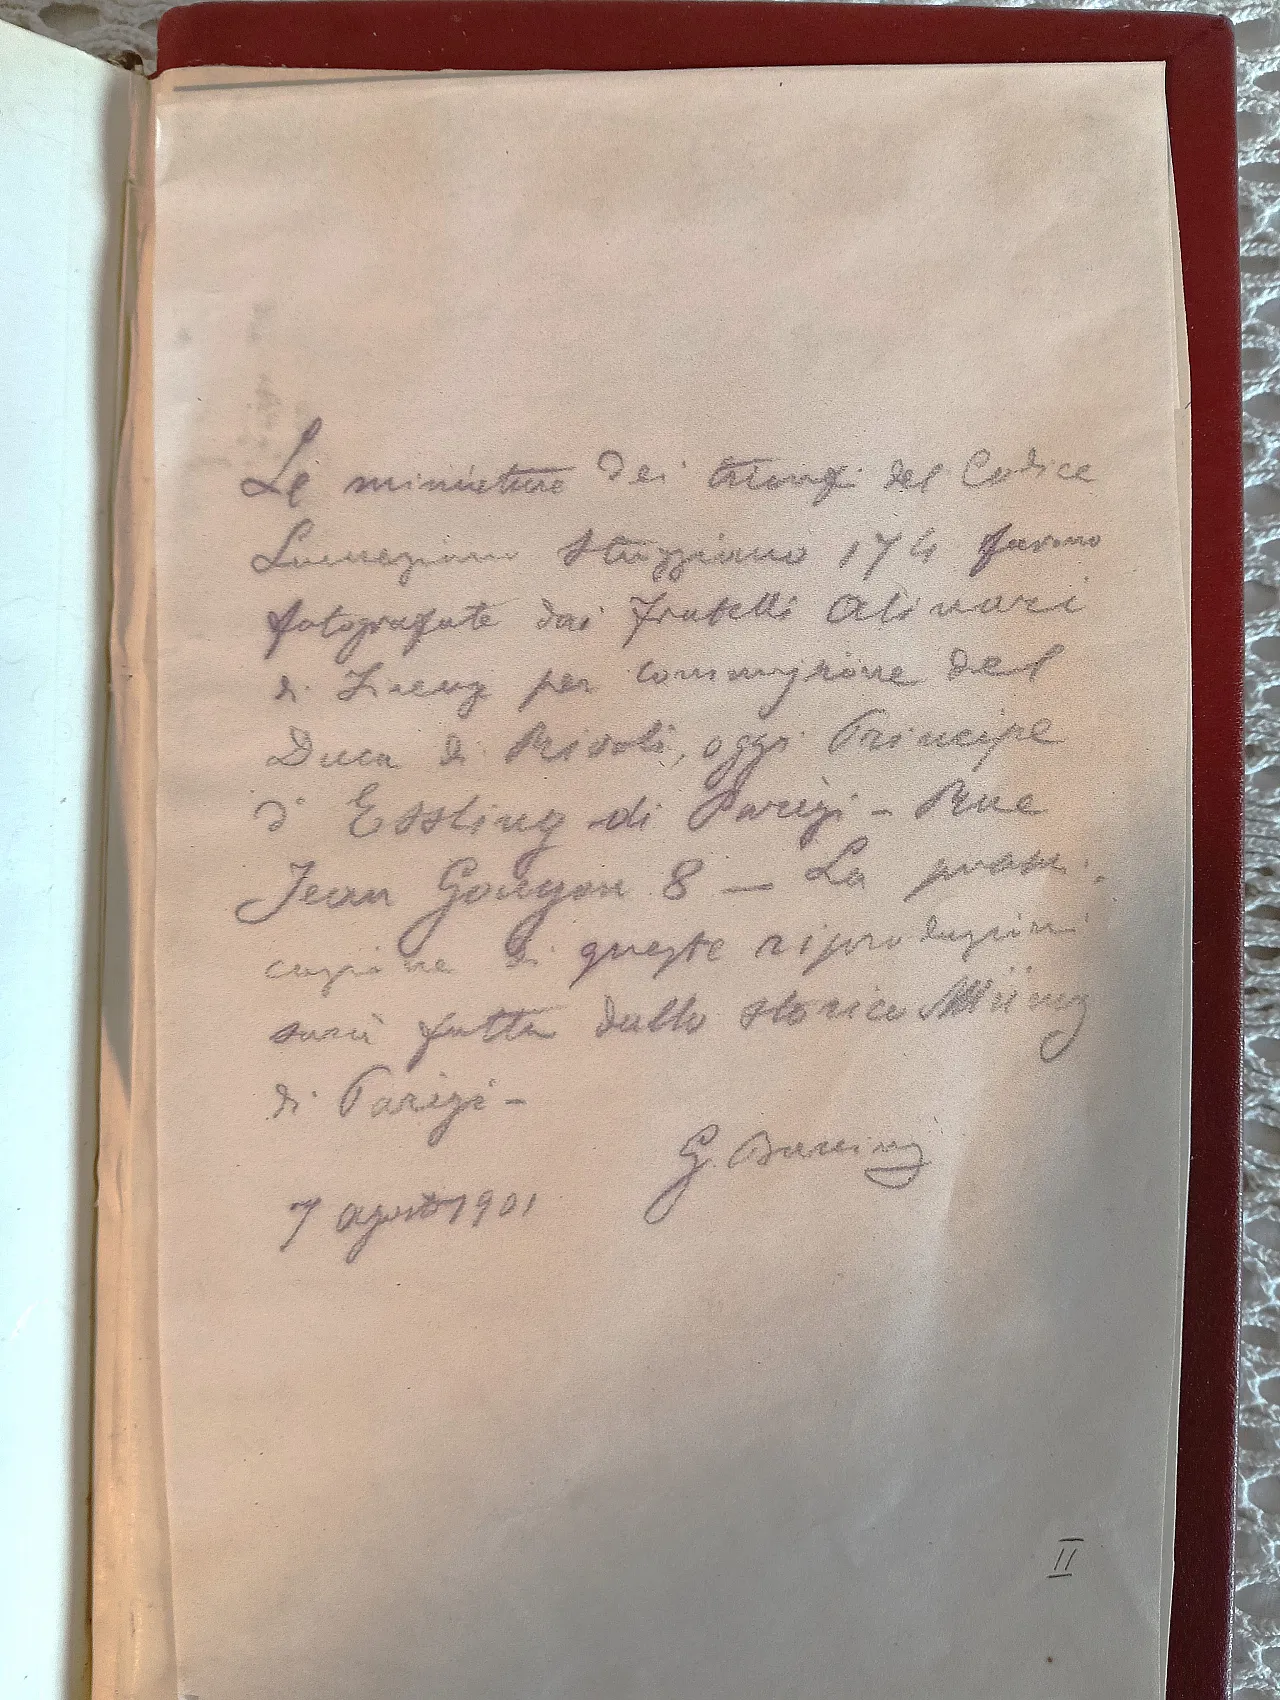 Le miniature dei trionfi del Codice
Laurenziano Strozziano 174 furono
fotografate dai fratelli Alinari
di Firenze per commissione del
Duca di Rivoli, oggi Principe
d'Essling di Parigi - Rue
Jean Goujon 8 — La pubbli-
cazione di queste riproduzioni
sarà fatta dallo storico Müntz
di Parigi -
G. Baccini
7 agosto 1901
II